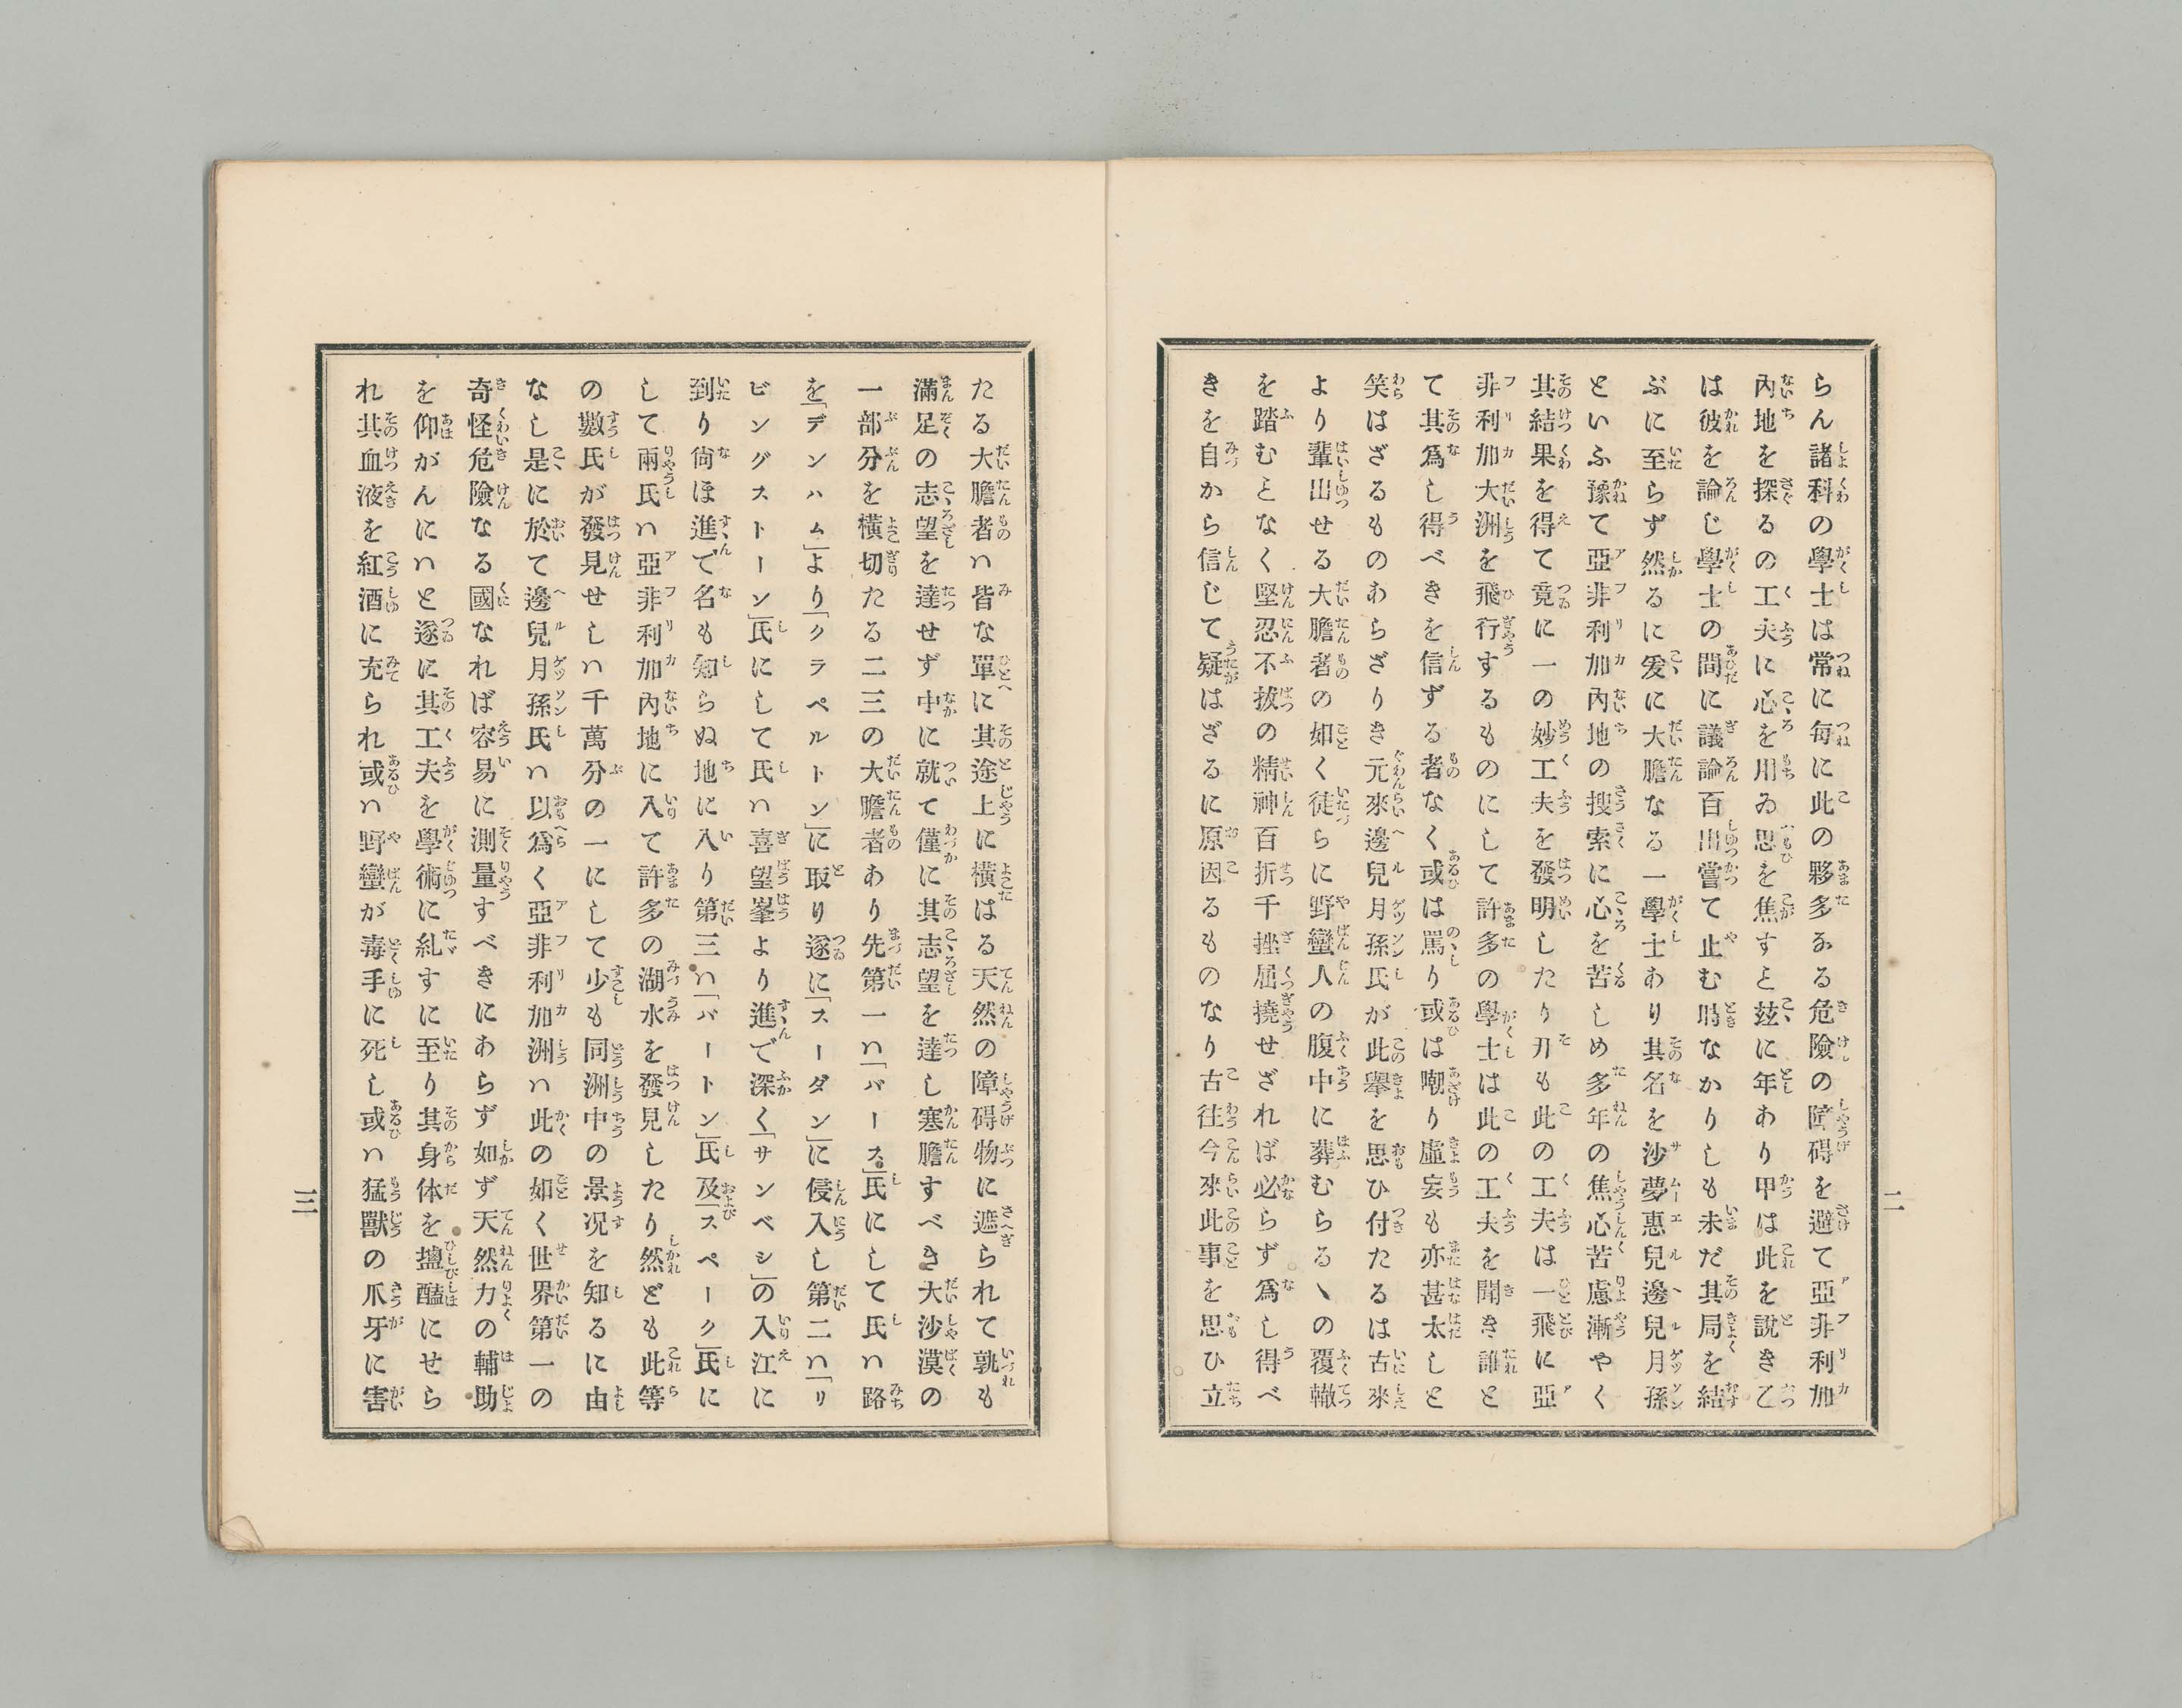 らん諸科の學士は常に毎に此の夥多ある危險の障碍を避て亞非利加
內地を探るの工夫に心を用ゐ思を焦すと玆に年あり甲は此を說き乙
は彼を論じ學士の間に議論百出嘗て止む時なかりしも未だ其局を結
ぶに至らず然るに爰に大膽なる一學士あり其名を沙夢惠兒邊兒月孫
といふ豫て亞非利加內地の搜索に心を苦しめ多年の焦心苦慮漸やく
其結果を得て竟に一の妙工夫を發明したり夫も此の工夫は一飛に亞
非利加大洲を飛行するものにして許多の學士は此の工夫を聞き誰と
て其爲し得べきを信ずる者なく或は罵り或は嘲り虛妄も亦甚太しと
笑はざるものあらざりき元來邊兒月孫氏が此擧を思ひ付たるは古來
より輩出せる大膽者の如く徒らに野蠻人の腹中に葬むらるヽの覆轍
を踏むとなく堅忍不拔の精神百折千挫屈撓せざれば必らず爲し得べ
きを自から信じて疑はざるに原因るものなり古往今來此事を思ひ立
二
たる大膽者ハ皆な單に其途上に橫はる天然の障碍物に遮られて孰も
滿足の志望を達せず中に就て僅に其志望を達し塞膽すべき大沙漠の
一部分を橫切たる二三の大膽者あり先第一ハ「バース」氏にして氏ハ路
を「デンハム」より「クラペルトン」に取り遂に「スーダン」に侵入し第二ハ「リ
ビングストーン」氏にして氏ハ喜望峯より進で深く「サンベシ」の入江に
到り尙ほ進で名も知らぬ地に入り第三ハ「バートン」氏及「スペーク」氏に
して兩氏ハ亞非利加內地に入て許多の湖水を發見したり然ども此等
の數氏が發見せしハ千萬分の一にして少も同洲中の景况を知るに由
なし是に於て邊兒月孫氏ハ以爲く亞非利加洲ハ此の如く世界第一の
奇怪危險なる國なれば容易に測量すべきにあらず如ず天然力の輔助
を仰がんにハと遂に其工夫を學術に糺すに至り其身体を鹽醢にせら
れ其血液を紅酒に充られ或ハ野蠻が毒手に死し或ハ猛獸の爪牙に害
三